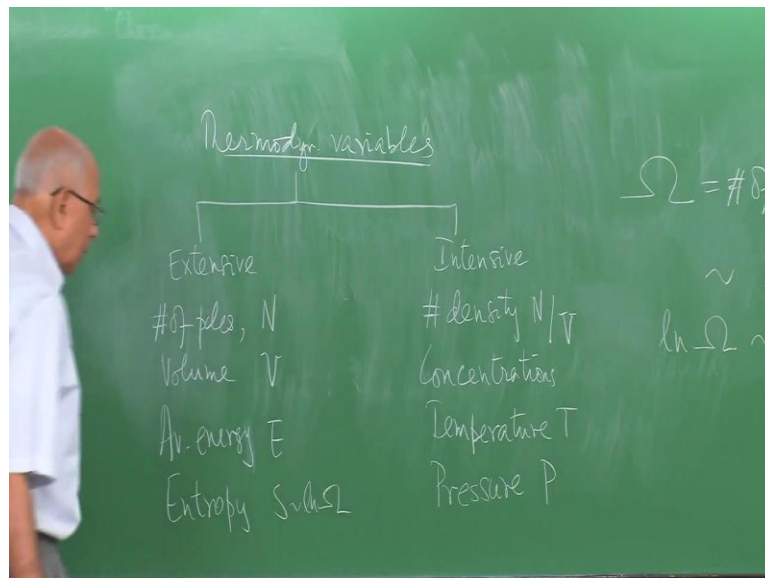 Thermodyn. variables
Extensive
# of pcles, N
Volume V
Av. energy E
Entropy S ~ ln Ω
Intensive
# density N/V
Concentrations
Temperature T
Pressure P
Ω = # of
~
ln Ω ~